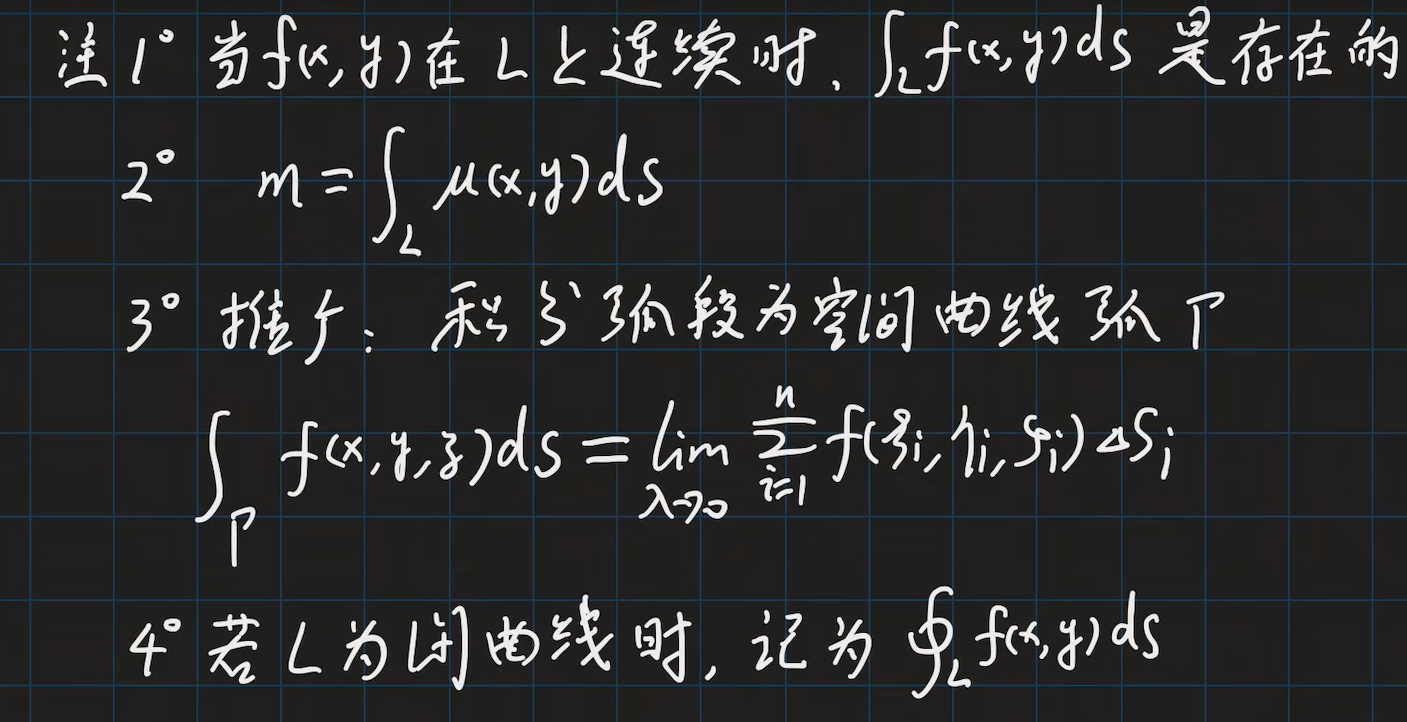 注 1° 当f(x,y)在 L 上连续时、∫_L f(x,y)ds 是存在的
2° m=∫_L μ(x,y)ds
3° 推广：积分弧段为空间曲线弧 Γ
∫_Γ f(x,y,z)ds = lim_{λ→0} ∑_{i=1}^{n} f(ξi,ηi,ζi)ΔSi
4° 若 L 为闭曲线时，记为 ∮_L f(x,y)ds